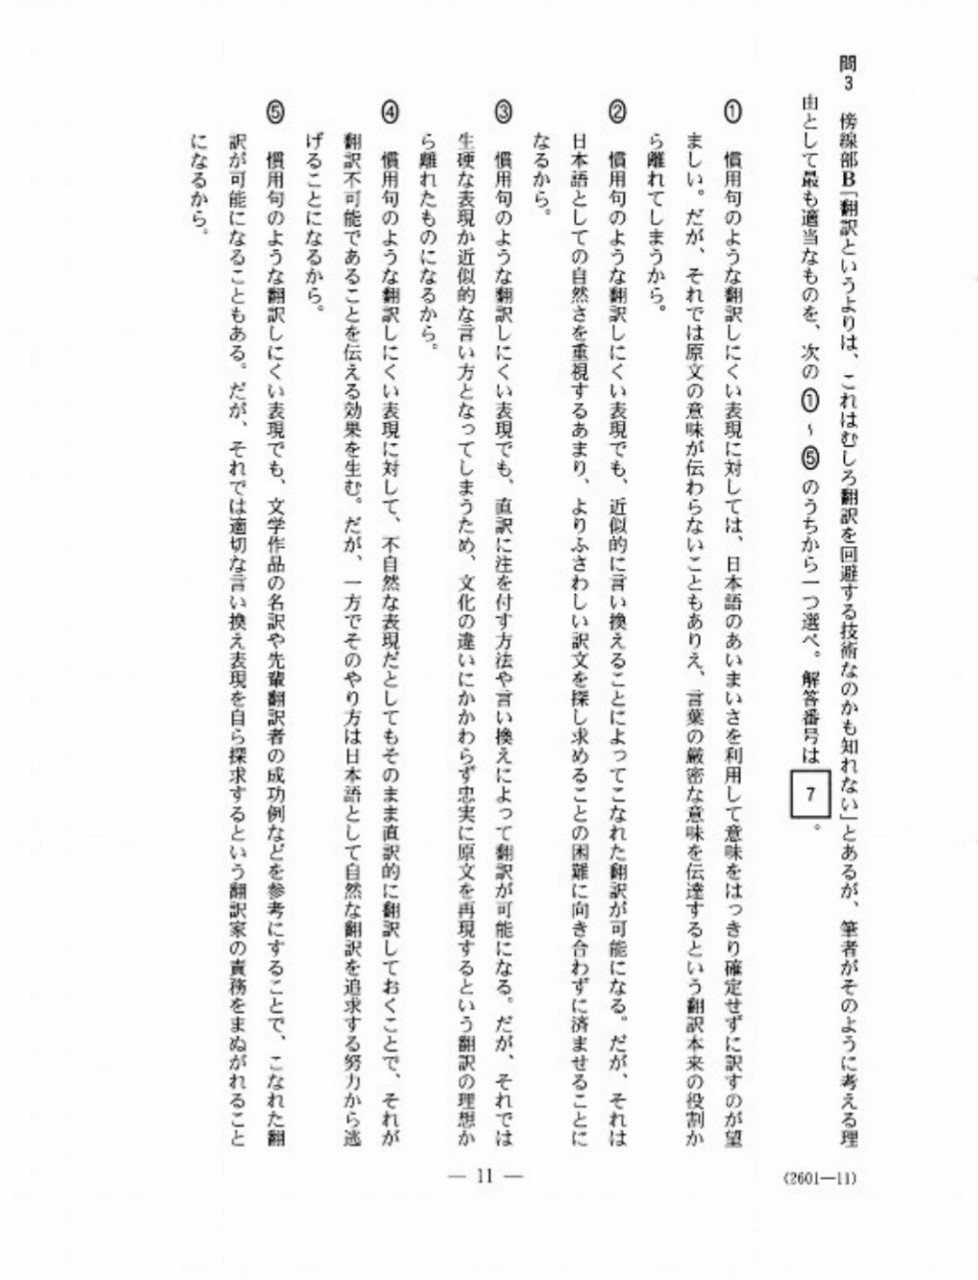 問3 傍線部B「翻訳というよりは、これはむしろ翻訳を回避する技術なのかも知れない」とあるが、筆者がそのように考える理
由として最も適当なものを、次の①～⑤のうちから一つ選べ。解答番号は 7 。
① 慣用句のような翻訳しにくい表現に対しては、日本語のあいまいさを利用して意味をはっきり確定せずに訳すのが望
ましい。だが、それでは原文の意味が伝わらないこともありえ、言葉の厳密な意味を伝達するという翻訳本来の役割か
ら離れてしまうから。
② 慣用句のような翻訳しにくい表現でも、近似的に言い換えることによってこなれた翻訳が可能になる。だが、それは
日本語としての自然さを重視するあまり、よりふさわしい訳文を探し求めることの困難に向き合わずに済ませることに
なるから。
③ 慣用句のような翻訳しにくい表現でも、直訳に注を付す方法や言い換えによって翻訳が可能になる。だが、それでは
生硬な表現か近似的な言い方となってしまうため、文化の違いにかかわらず忠実に原文を再現するという翻訳の理想か
ら離れたものになるから。
④ 慣用句のような翻訳しにくい表現に対して、不自然な表現だとしてもそのまま直訳的に翻訳しておくことで、それが
翻訳不可能であることを伝える効果を生む。だが、一方でそのやり方は日本語として自然な翻訳を追求する努力から逃
げることになるから。
⑤ 慣用句のような翻訳しにくい表現でも、文学作品の名訳や先輩翻訳者の成功例などを参考にすることで、こなれた翻
訳が可能になることもある。だが、それでは適切な言い換え表現を自ら探求するという翻訳家の責務をまぬがれること
になるから。
— 11 —
(2601—11)